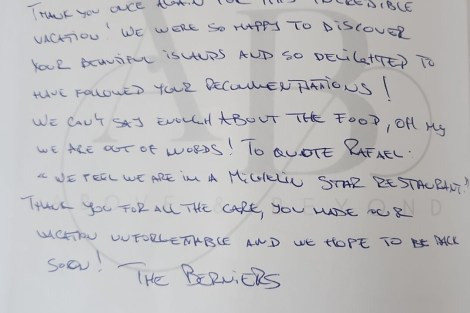 THANK YOU ONCE AGAIN FOR THIS INCREDIBLE
VACATION! WE WERE SO HAPPY TO DISCOVER
YOUR BEAUTIFUL ISLANDS AND SO DELIGHTED TO
HAVE FOLLOWED YOUR RECOMMENTNATIONS!
WE CAN'T SAY ENOUGH ABOUT THE FOOD, OH MY
WE ARE OUT OF WORDS! TO QUOTE RAFAEL.
"WE FEEL WE ARE IN A MICHELIN STAR RESTAURANT."
THANK YOU FOR ALL THE CARE, YOU MADE OUR
VACATION UNFORGETTABLE AND WE HOPE TO BE BACK
SOON! THE BERNIERS
AB
BEYOND